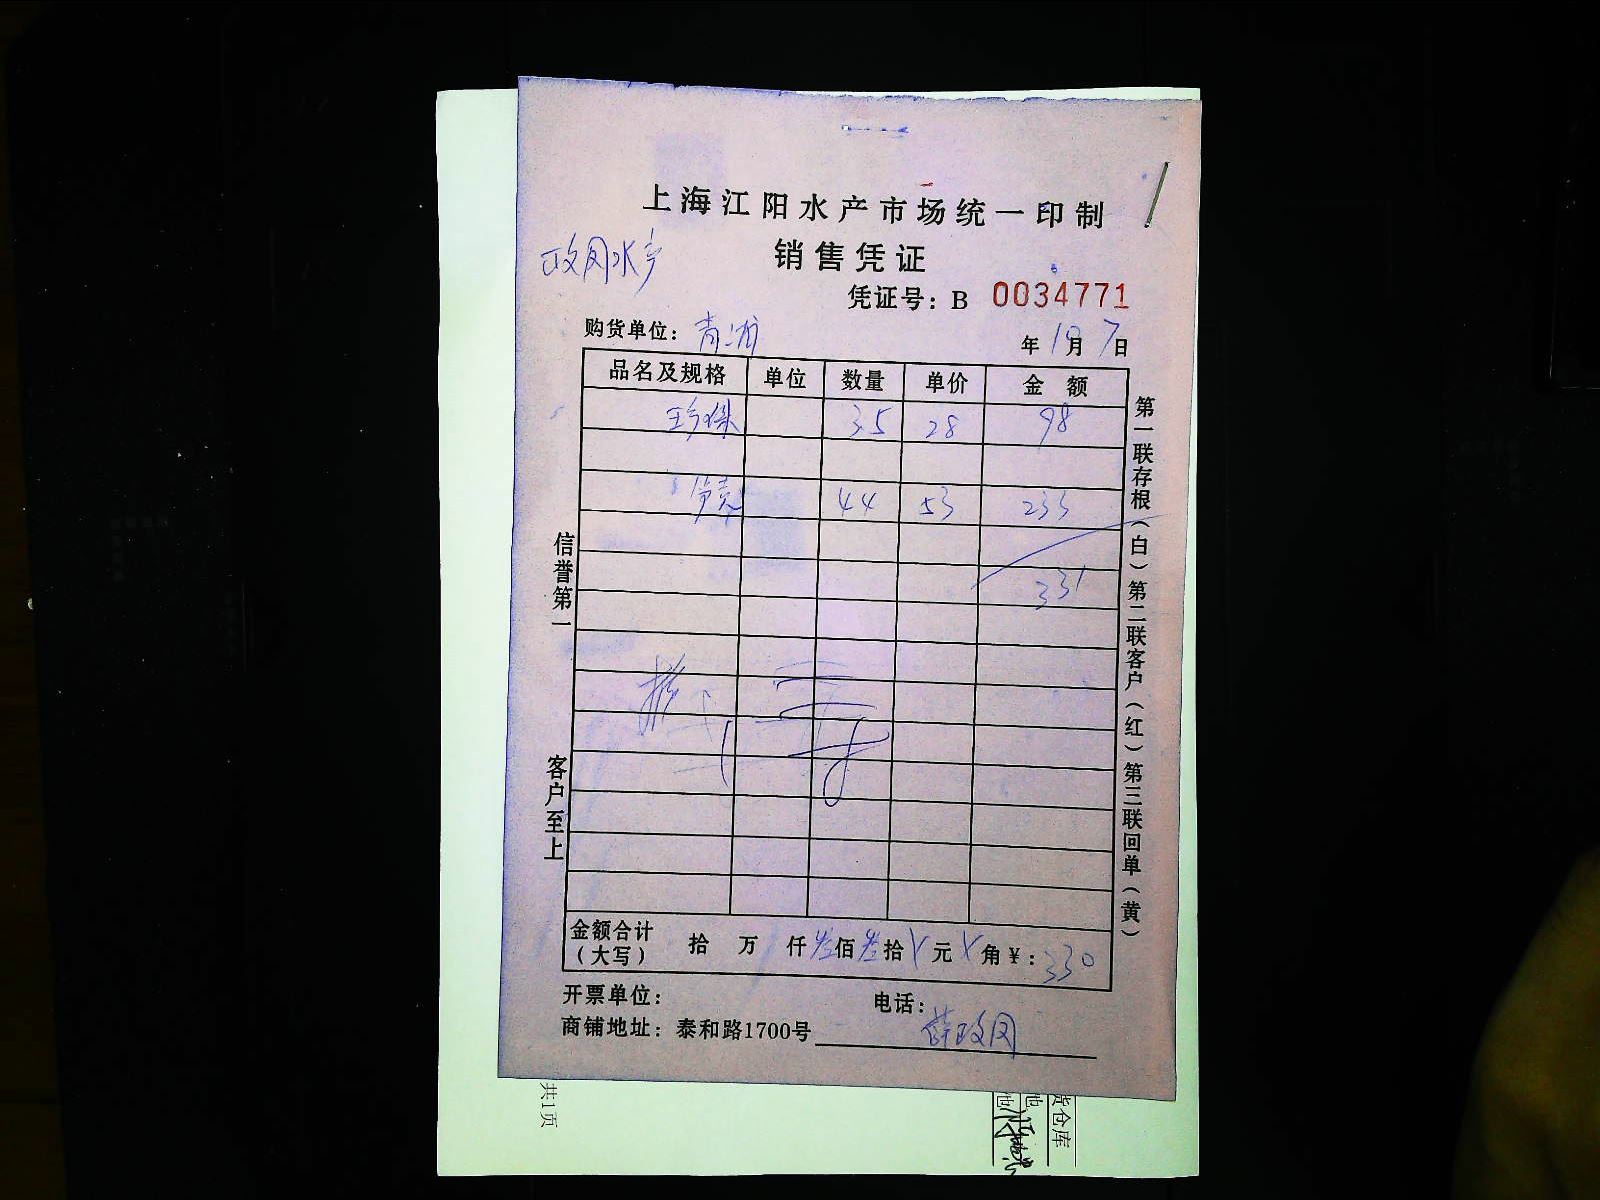 上海江阳水产市场统一印制
政国水产
销售凭证
凭证号：B 0034771
购货单位：青浦
年10月7日
品名及规格 单位 数量 单价 金额
珍珠 35 28 98
44 53 233
331
金额合计（大写） 拾 万 仟叁佰叁拾 元 角￥：330
开票单位： 电话：
商铺地址：泰和路1700号 薛政国
信誉第一
客户至上
第一联存根（白）第二联客户（红）第三联回单（黄）
共1页
货仓库